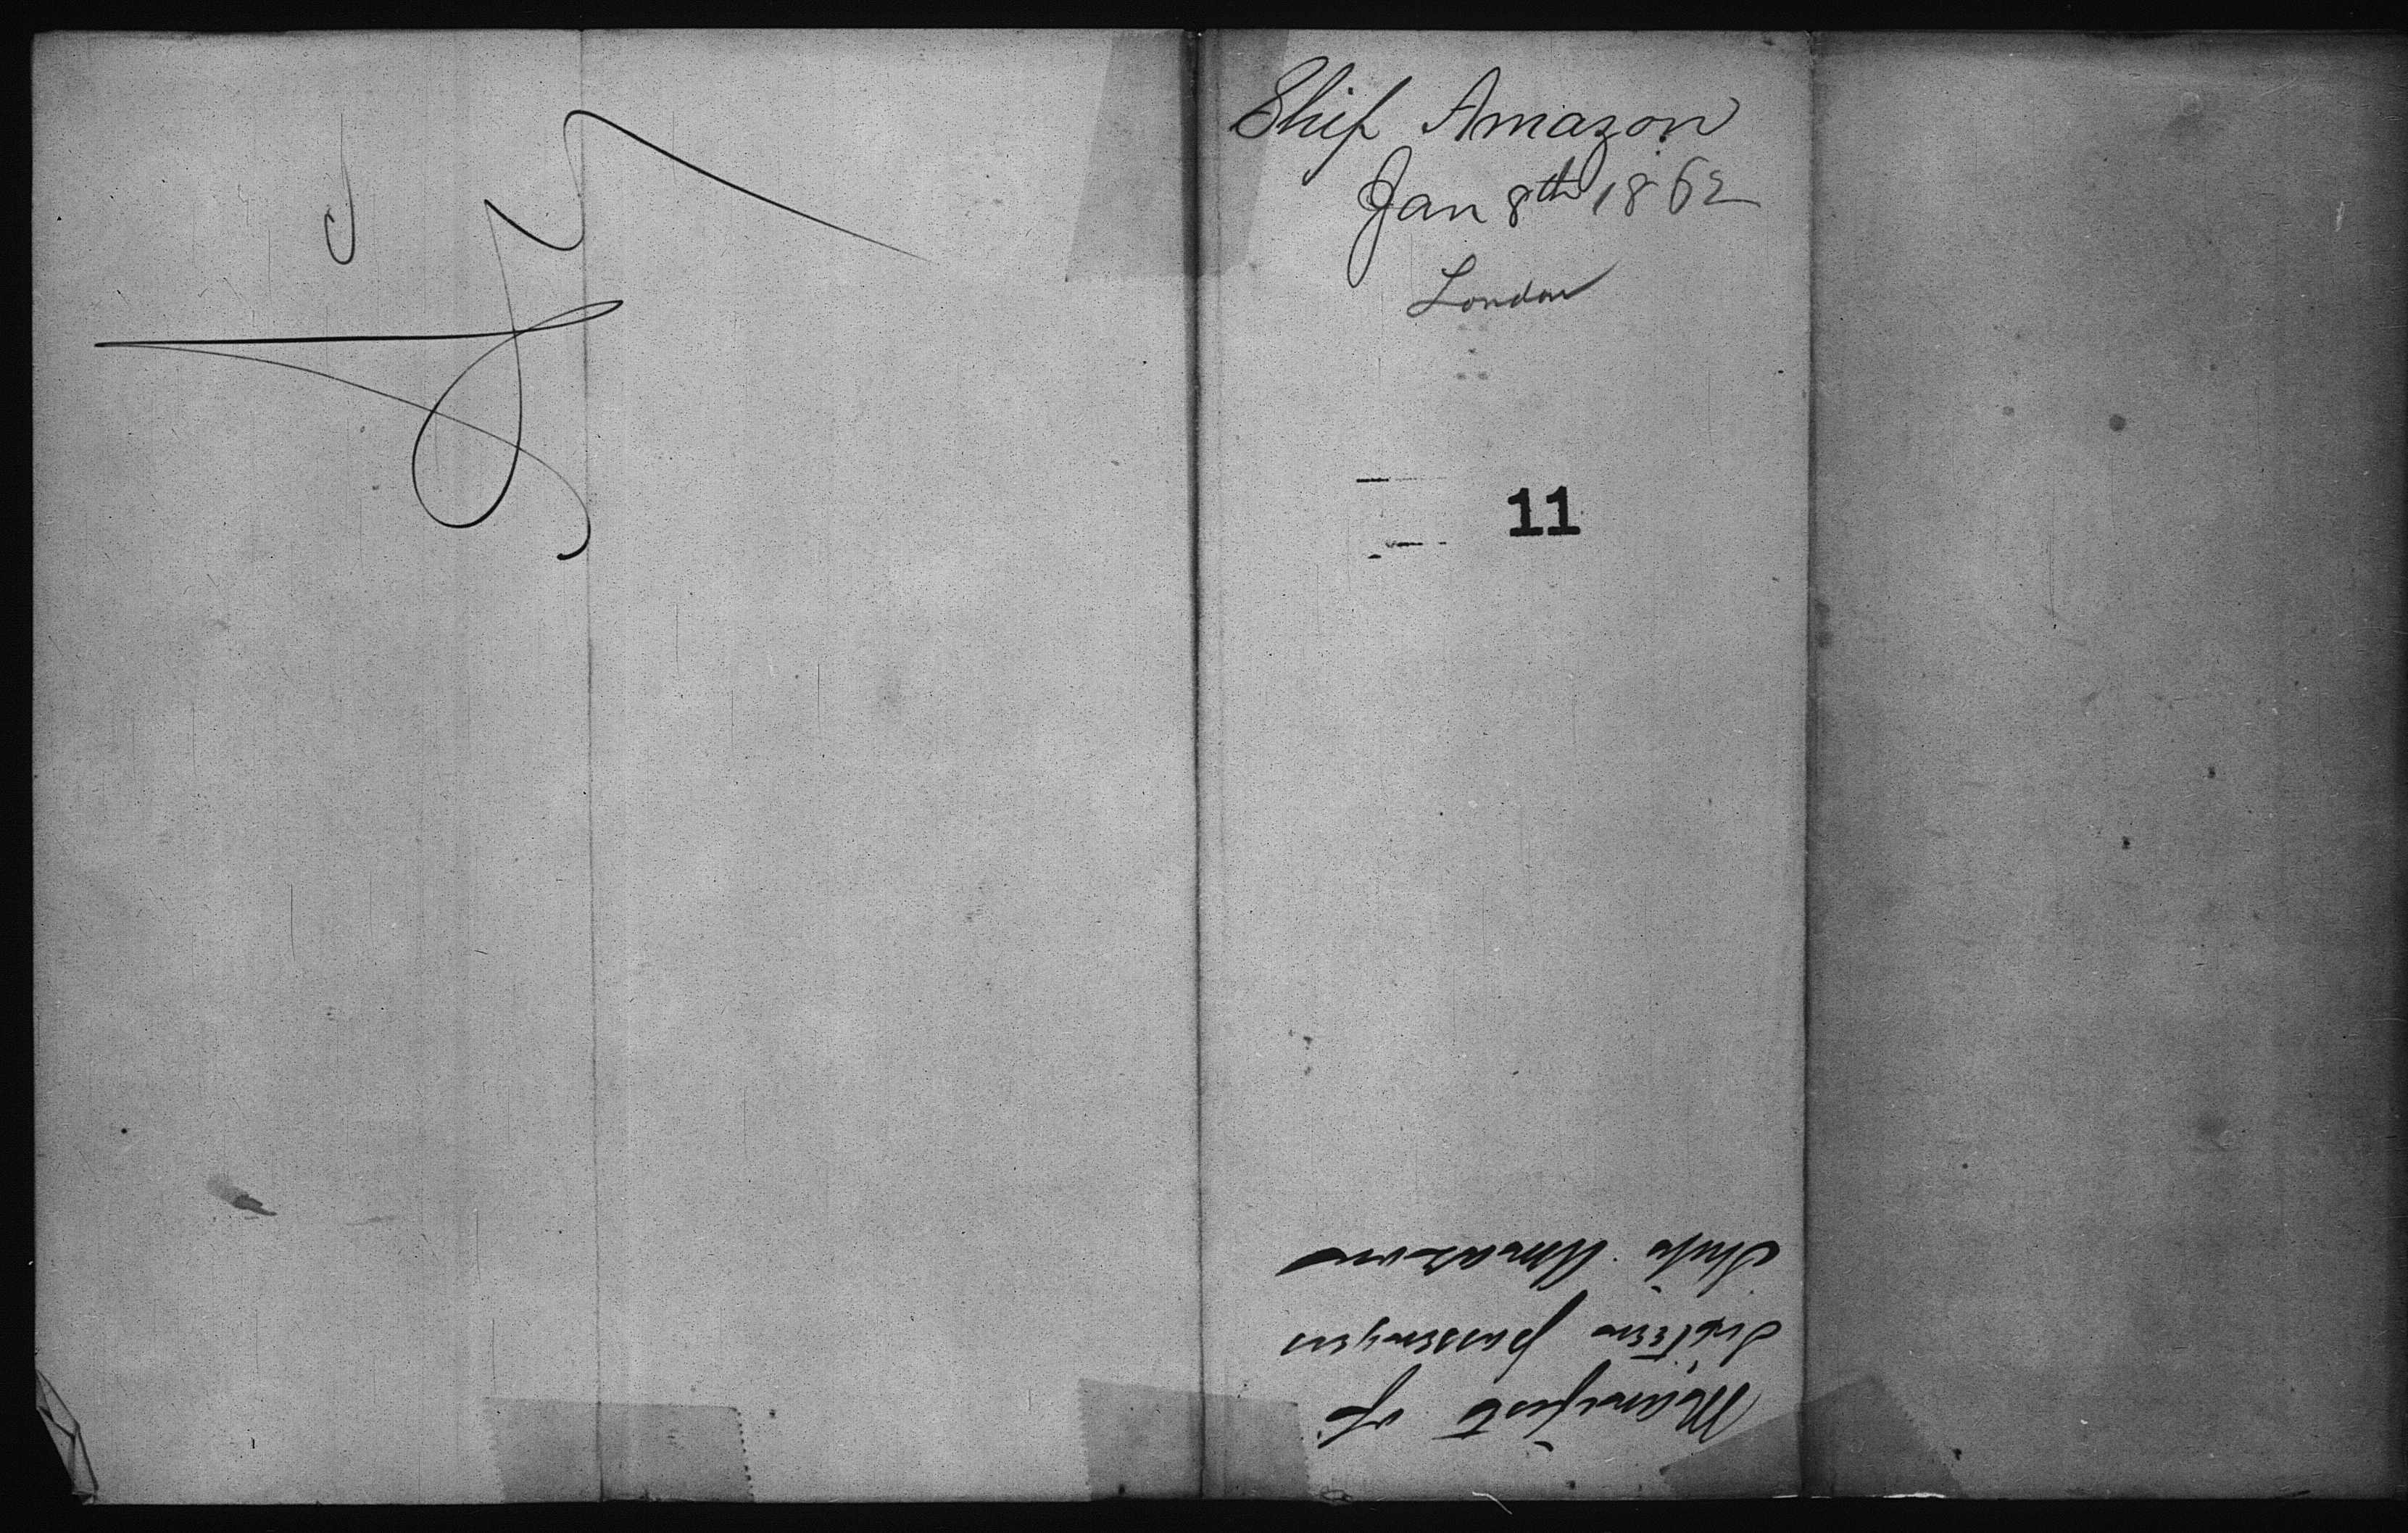 Ship Amazon
Jan 8th 1862
London
11
Manifest of
Sixteen passengers
Ship Amazon